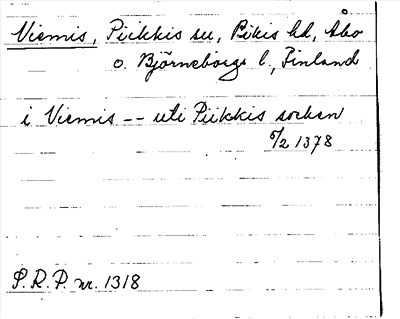 Viemis, Piikkis su, Pikis hd, Åbo
o. Björneborgs l., Finland
i Viemis -- uti Piikkis socken
6/2 1378
S.R.P. nr. 1318